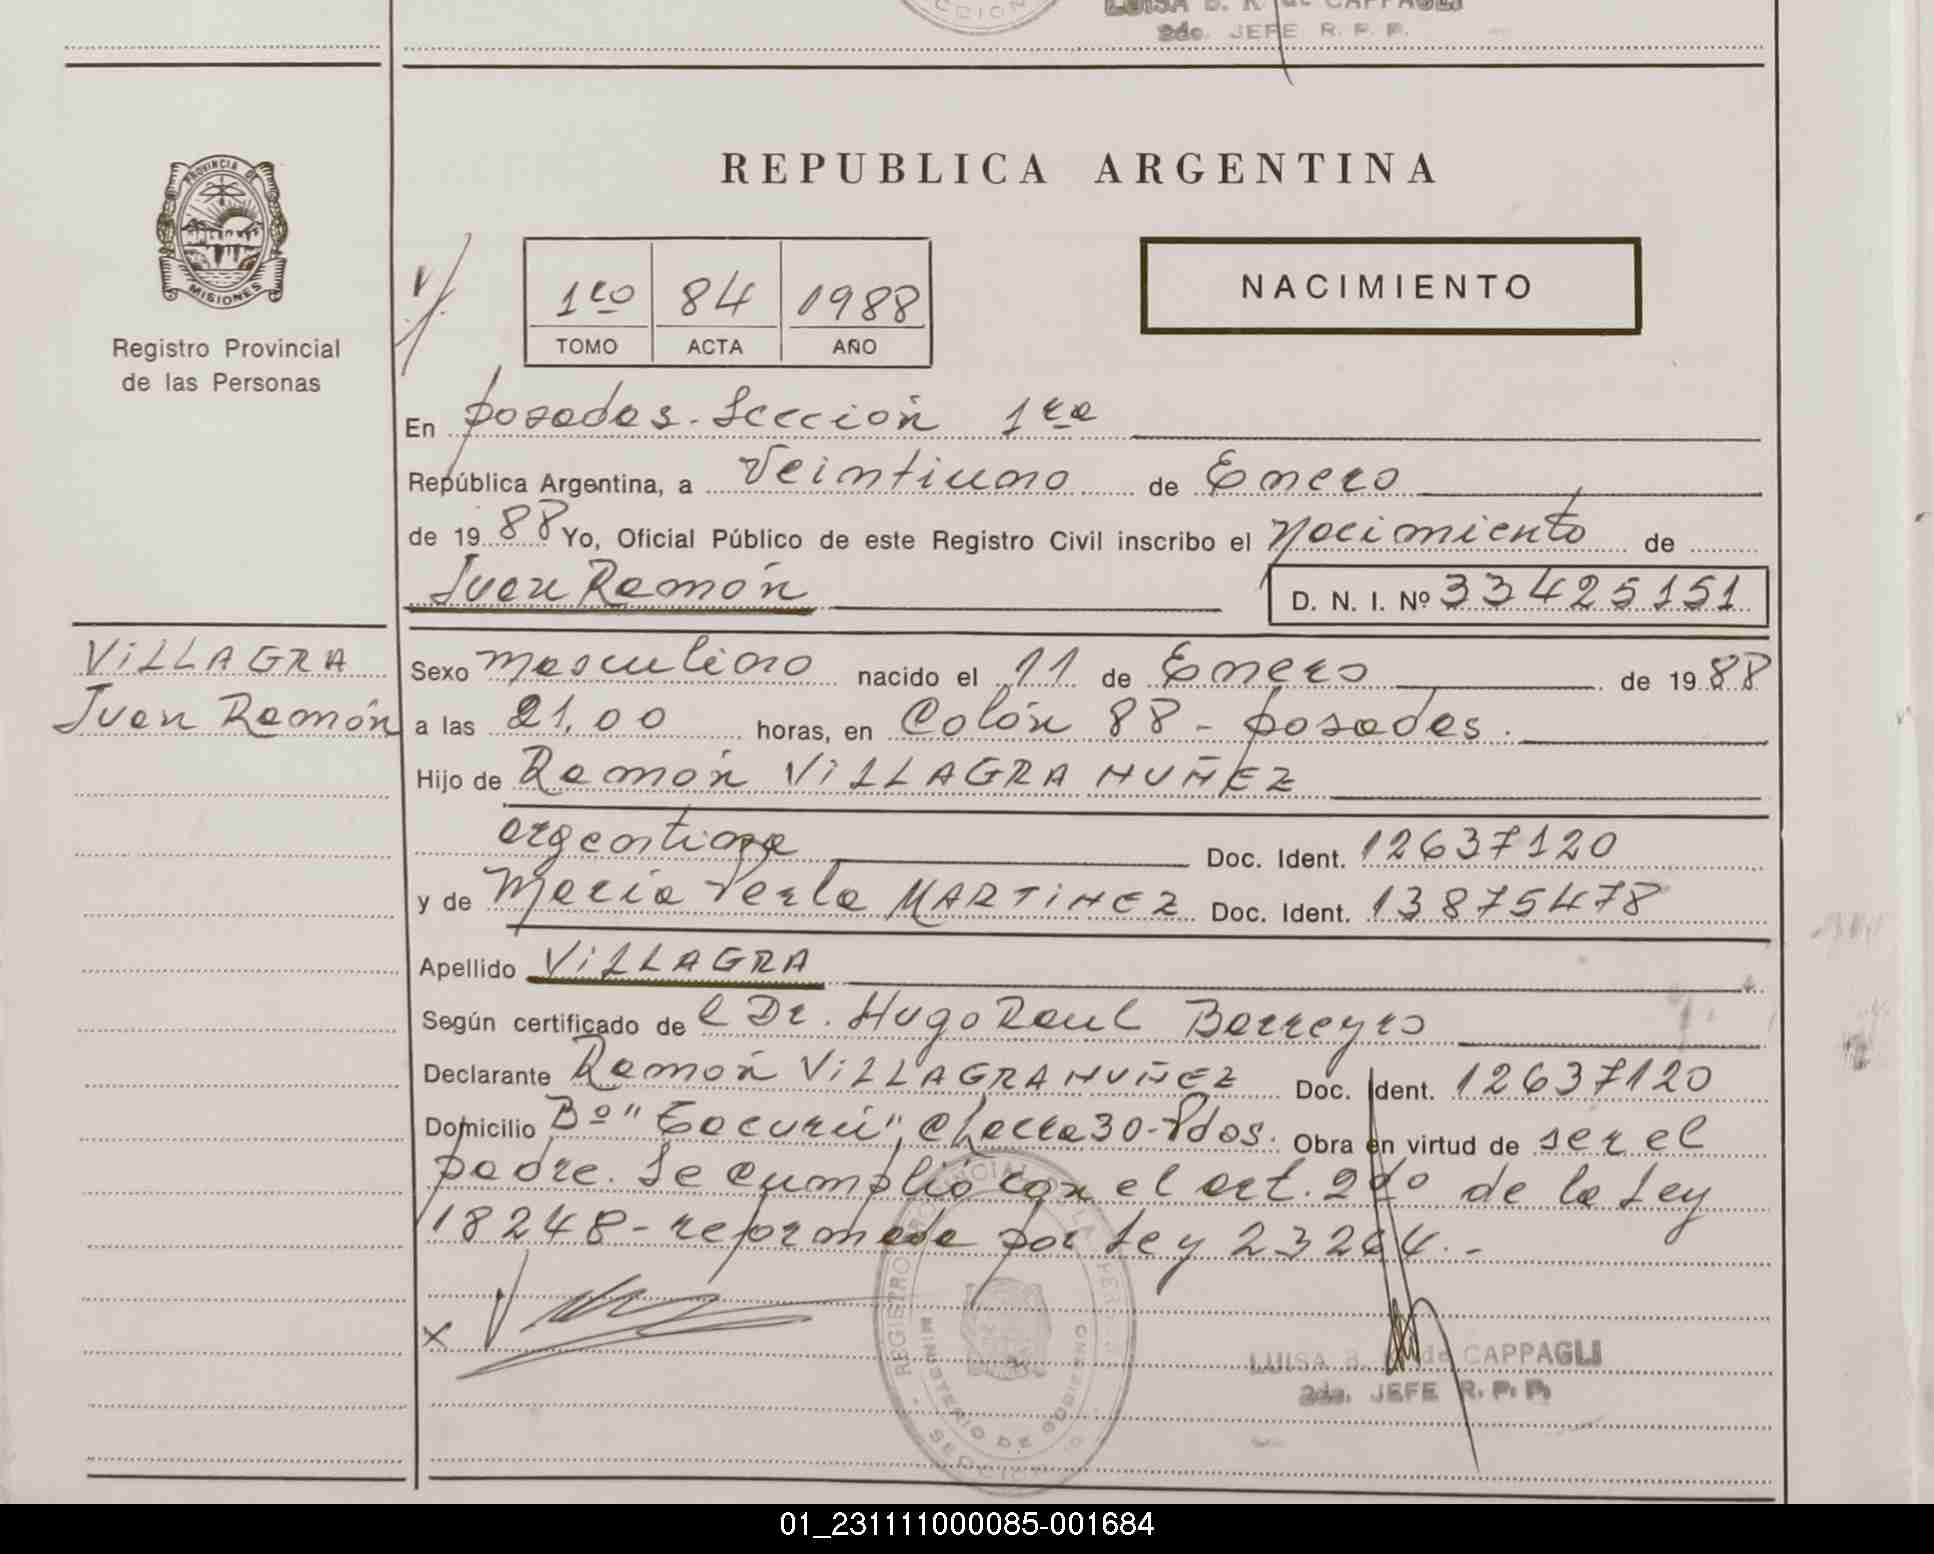 LUISA B. R. de CAPPAGLI
2do. JEFE R. P. P.
PROVINCIA DE
MISIONES
Registro Provincial
de las Personas
REPUBLICA ARGENTINA
1ro 84 1988
TOMO ACTA AÑO
NACIMIENTO
En Posadas. Sección 1ra
República Argentina, a Veintiuno de Enero
de 19 88 Yo, Oficial Público de este Registro Civil inscribo el Nacimiento de
Juan Ramón
D. N. I. Nº 33425151
VILLAGRA
Juan Ramón
Sexo masculino nacido el 11 de Enero de 19 88
a las 21,00 horas, en Colón 88 - Posadas.
Hijo de Ramón VILLAGRA NUÑEZ
argentina Doc. Ident. 12637120
y de María Perla MARTINEZ Doc. Ident. 13875478
Apellido VILLAGRA
Según certificado de l Dr. Hugo Raul Barreyro
Declarante Ramón VILLAGRA NUÑEZ Doc. Ident. 12637120
Domicilio Bº " ", Chacra 30 - Pdas. Obra en virtud de ser el
padre. Se cumplió con el art. 2do de la Ley
18248 - reformada por Ley 23264.-
x
REGISTRO PROVINCIAL DE LAS PERSONAS
MINISTERIO DE GOBIERNO
SECCION
LUISA B. R. de CAPPAGLI
2do. JEFE R. P. P.
01_231111000085-001684